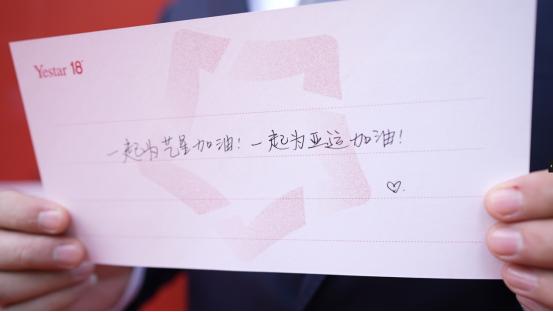 Yestar 18
一起为艺星加油！一起为亚运加油！